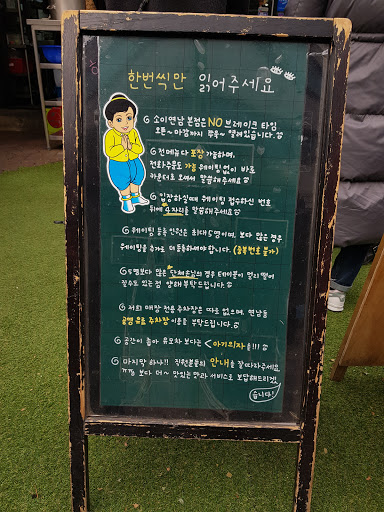 한번씩만 읽어주세요
소이연남 본점은 NO 브레이크 타임
오픈~마감까지 쭈욱~ 열려있습니다.
전메뉴 다 포장 가능하며,
전화주문도 가능 웨이팅없이 바로
카운터로 오셔서 말씀해주세요
입장하실때 웨이팅 접수하신 번호
뒤에 4자리를 말씀해주세요
웨이팅 등록 인원은 최대 5명이며, 보다 많은 경우
웨이팅을 추가로 더 등록하셔야합니다. (중복번호 불가)
5명보다 많은 단체손님의 경우 테이블이 멀리 떨어
질수도 있는점 양해부탁드립니다.
저희 매장 전용 주차장은 따로 없으며, 연남동
공영 유료 주차장 이용을 부탁드립니다.
공간이 좁아 유모차 보다는 < 아기의자를!!!
마지막 하나!! 직원분들의 안내를 잘따라주세요
보다 더~ 맛있는 맛과 서비스로 보답해드리겠
습니다!